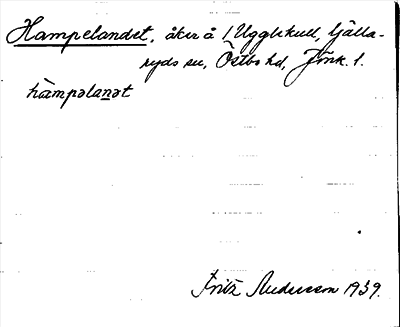 Hampelandet, åker å 1 Ugglekull, Gälla-
ryds sn, Östbo hd, Jönk. l.
hàmpəlanət
Fritz Andersson 1939.